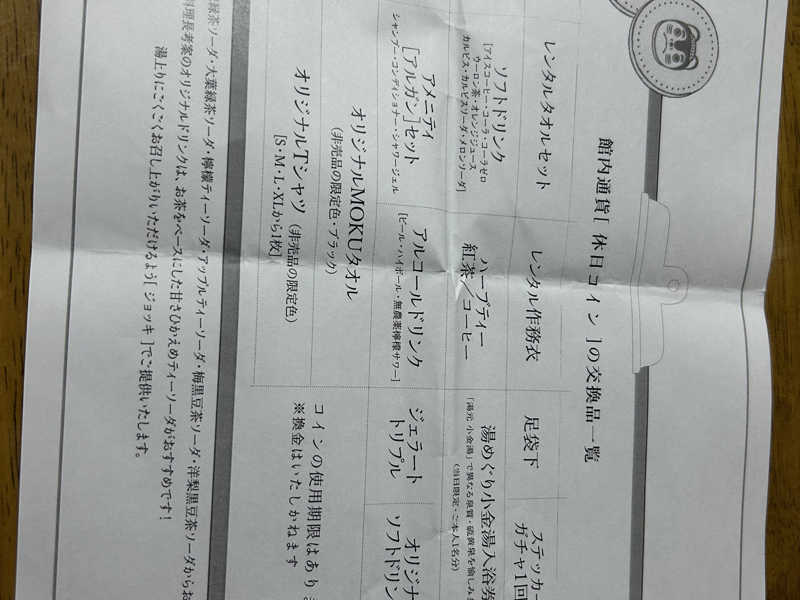 館内通貨［ 休日コイン ］の交換品一覧
レンタルタオルセット
レンタル作務衣
足袋下
ステッカー
ガチャ1回
ソフトドリンク
［アイスコーヒー・コーラ・コーラゼロ
ウーロン茶・オレンジジュース
カルピス・カルピスソーダ・メロンソーダ］
ハーブティー
紅茶／コーヒー
湯めぐり小金湯入浴券
「湯元 小金湯」で異なる泉質・硫黄泉を愉しみ
（当日限定・ご本人1名分）
アメニティ
［アルガン］セット
シャンプー・コンディショナー・シャワージェル
アルコールドリンク
［ビール・ハイボール・無農薬檸檬サワー］
ジェラート
トリプル
オリジナ
ソフトドリン
オリジナルMOKUタオル
（非売品の限定色・ブラック）
オリジナルTシャツ（非売品の限定色）
［S・M・L・XLから1枚］
コインの使用期限はありま
※換金はいたしかねます
緑茶ソーダ・大葉緑茶ソーダ・檸檬ティーソーダ・アップルティーソーダ・梅黒豆茶ソーダ・洋梨黒豆茶ソーダからお
料理長考案のオリジナルドリンクは、お茶をベースにした甘さひかえめティーソーダがおすすめです！
湯上りにごくごくお召し上がりいただけるよう［ ジョッキ ］でご提供いたします。